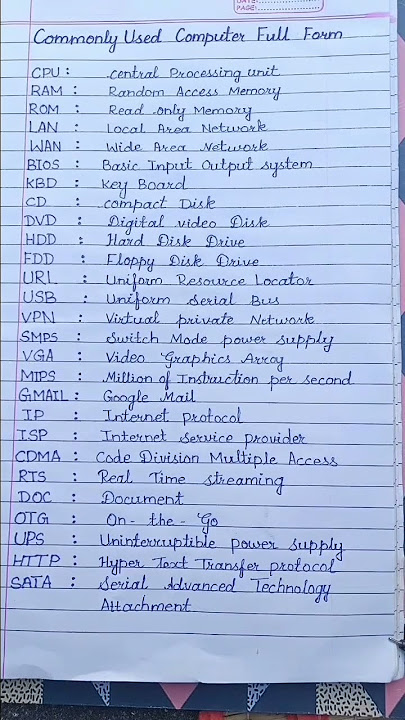 DATE:
PAGE:
Commonly Used Computer Full Form
CPU : central Processing unit
RAM : Random Access Memory
ROM : Read only Memory
LAN : Local Area Network
WAN : Wide Area Network
BIOS : Basic Input Output system
KBD : Key Board
CD : compact Disk
DVD : Digital video Disk
HDD : Hard Disk Drive
FDD : Floppy Disk Drive
URL : Uniform Resource Locator
USB : Uniform Serial Bus
VPN : Virtual private Network
SMPS : Switch Mode power supply
VGA : Video Graphics Array
MIPS : Million of Instruction per second
GMAIL : Google Mail
IP : Internet protocol
ISP : Internet service provider
CDMA : Code Division Multiple Access
RTS : Real Time streaming
DOC : Document
OTG : On - the - Go
UPS : Uninterruptible power supply
HTTP : Hyper Taxt Transfer protocol
SATA : Serial Advanced Technology
Attachment